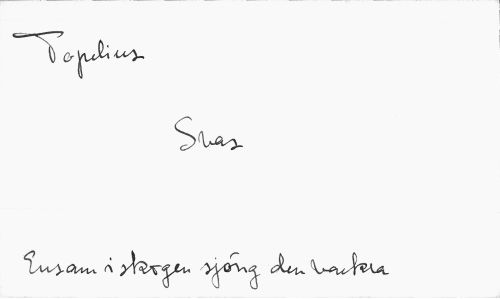 Topelius
Svar
Ensam i skogen sjöng den vackra